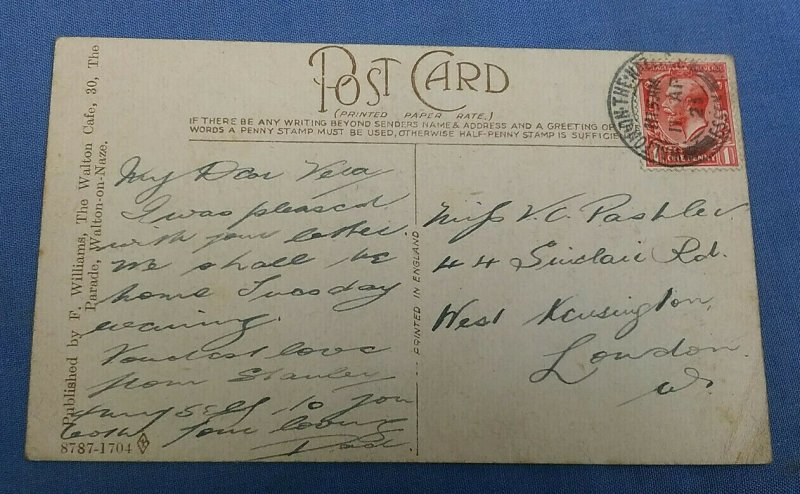 Published by F. Williams, The Walton Cafe, 30, The
Parade, Walton-on-Naze.
8787-1704
POST CARD
(PRINTED PAPER RATE.)
IF THERE BE ANY WRITING BEYOND SENDERS NAME & ADDRESS AND A GREETING OF
WORDS A PENNY STAMP MUST BE USED, OTHERWISE HALF-PENNY STAMP IS SUFFICIE
PRINTED IN ENGLAND
My Dear Vera
I was pleased
with your letter.
We shall be
home Tuesday
evening.
love
from Stanley
& my self to you
both your loving
Dad
Miss V. C. Pashler
44 Sinclair Rd.
West Kensington,
London
W.
ONE PENNY